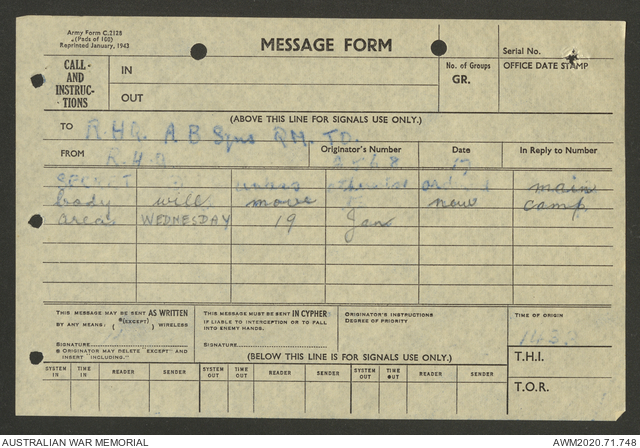 Army Form C.2128
(Pads of 100)
Reprinted January, 1943
MESSAGE FORM
Serial No.
CALL-
AND
INSTRUC-
TIONS
IN
OUT
No. of Groups
GR.
OFFICE DATE STAMP
(ABOVE THIS LINE FOR SIGNALS USE ONLY.)
TO R.H.Q. A B Sqns Q.M. T.O.
FROM R.H.Q.
Originator's Number
Date
17
In Reply to Number
SECRET unless otherwise main
body will move to new camp
area WEDNESDAY 19 Jan
THIS MESSAGE MAY BE SENT AS WRITTEN
BY ANY MEANS: *(EXCEPT) WIRELESS
SIGNATURE
* ORIGINATOR MAY DELETE "EXCEPT" AND
INSERT "INCLUDING."
THIS MESSAGE MUST BE SENT IN CYPHER
IF LIABLE TO INTERCEPTION OR TO FALL
INTO ENEMY HANDS.
SIGNATURE
ORIGINATOR'S INSTRUCTIONS
DEGREE OF PRIORITY
TIME OF ORIGIN
T.H.I.
T.O.R.
(BELOW THIS LINE IS FOR SIGNALS USE ONLY.)
SYSTEM IN TIME IN READER SENDER SYSTEM OUT TIME OUT READER SENDER SYSTEM OUT TIME OUT READER SENDER
AUSTRALIAN WAR MEMORIAL
AWM2020.71.748